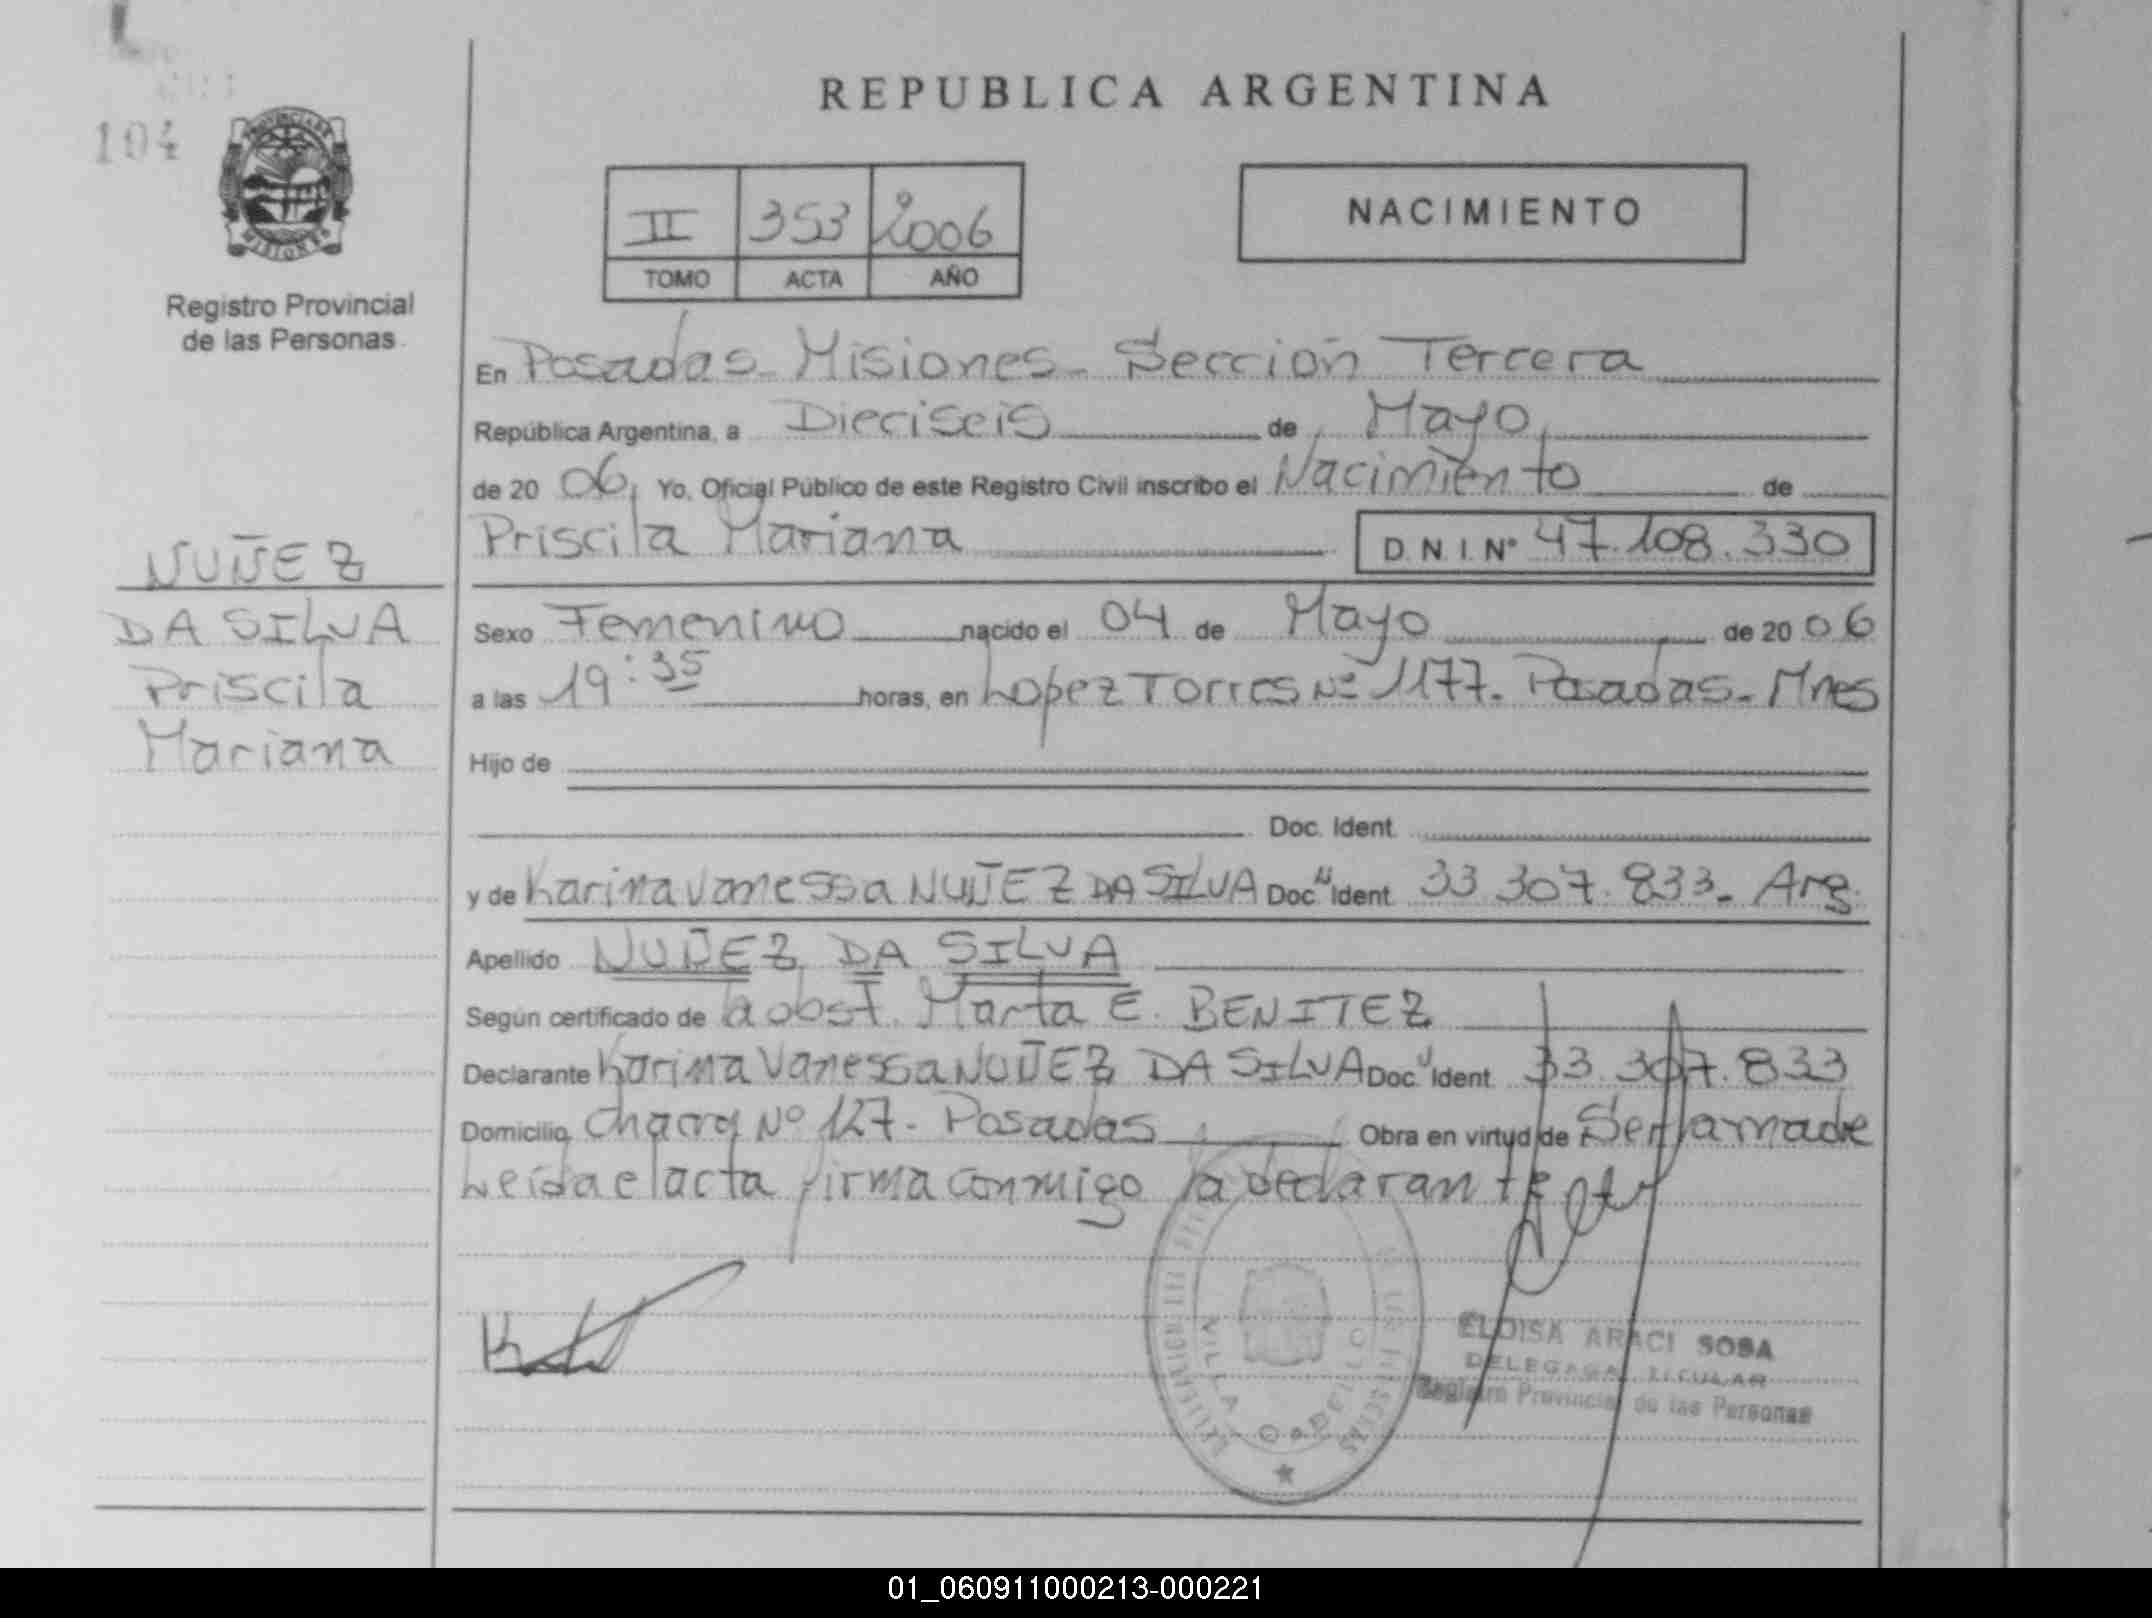 104
REPUBLICA ARGENTINA
II 353 2006
TOMO ACTA AÑO
NACIMIENTO
PROVINCIA DE
MISIONES
Registro Provincial
de las Personas
En Posadas - Misiones - Sección Tercera
República Argentina, a Dieciseis de Mayo
de 20 06, Yo, Oficial Público de este Registro Civil inscribo el Nacimiento de
Priscila Mariana D.N.I. Nº 47.108.330
NUÑEZ
DA SILVA
Priscila
Mariana
Sexo Femenino nacido el 04 de Mayo de 20 06
a las 19:35 horas, en Lopez Torres Nº 1177. Posadas - Mnes
Hijo de
Doc. Ident.
y de Karina Vanessa NUÑEZ DA SILVA Doc. Ident. 33 307.833 - Arg.
Apellido NUÑEZ DA SILVA
Según certificado de la obst. Marta E. BENITEZ
Declarante Karina Vanessa NUÑEZ DA SILVA Doc. Ident. 33.307.833
Domicilio Chacra Nº 127 - Posadas Obra en virtud de Ser la madre
Leida el acta firma conmigo la declarante
VILLA CABELLO
ELOISA ARACI SOSA
DELEGADA TITULAR
Registro Provincial de las Personas
01_060911000213-000221